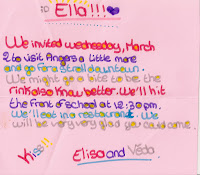 Ella!!!
We invited wednesday, March
2 to visit Angers a little more
and go for a stroll dauntown.
We might go a site to be the
rink also Know better. We'll hit
the front of school at 12:30 pm.
We'll eat in a restaurant. We
will be very very glad you could come.
Kiss!!
Elisa and